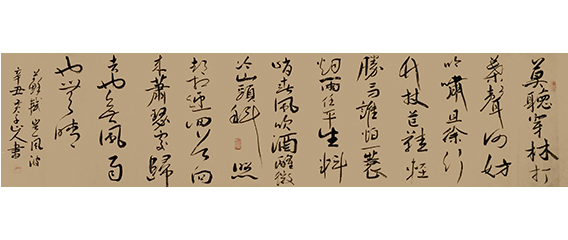 莫聽穿林打
葉聲何妨
吟嘯且徐行
竹杖芒鞋輕
勝馬誰怕一蓑
烟雨任平生料
峭春風吹酒醒微
冷山頭斜照
却相迎回首向
来蕭瑟處歸
去也無風雨
也無晴
蘇軾定風波
辛丑 書